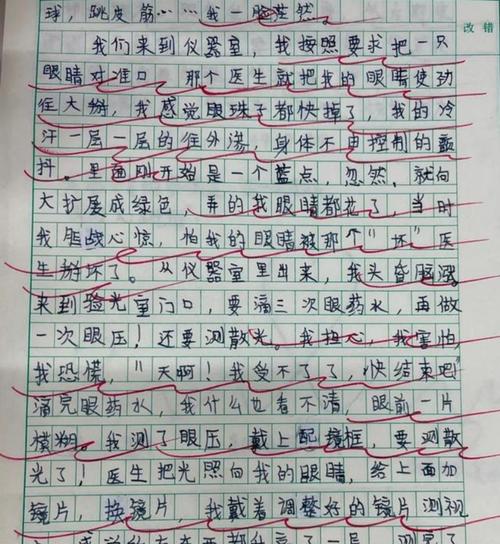 球，跳皮筋……我一脸茫然。
改错
我们来到仪器室，我按照要求把一只
眼睛对准口 那个医生就把我的眼睛使劲
往大掰，我感觉眼珠子都快掉了，我的冷
汗一层一层的往外渗，身体不由控制的颤
抖。里面刚开始是一个蓝点，忽然，就向
大扩展成绿色，弄的我眼睛都花了，当时
我胆战心惊，怕我的眼睛被那个"坏"医
生掰坏了。从仪器室里出来，我头昏脑涨
来到验光室门口，要滴三次眼药水，再做
一次眼压！还要测散光。我担心，我害怕
我恐慌，"天啊！我受不了了，快结束吧"
滴完眼药水，我什么也看不清，眼前一片
模糊。我测了眼压，戴上配镜框，要测散
光了！医生把光照向我的眼睛，给上面加
镜片，换镜片，我戴着调整好的镜片测视